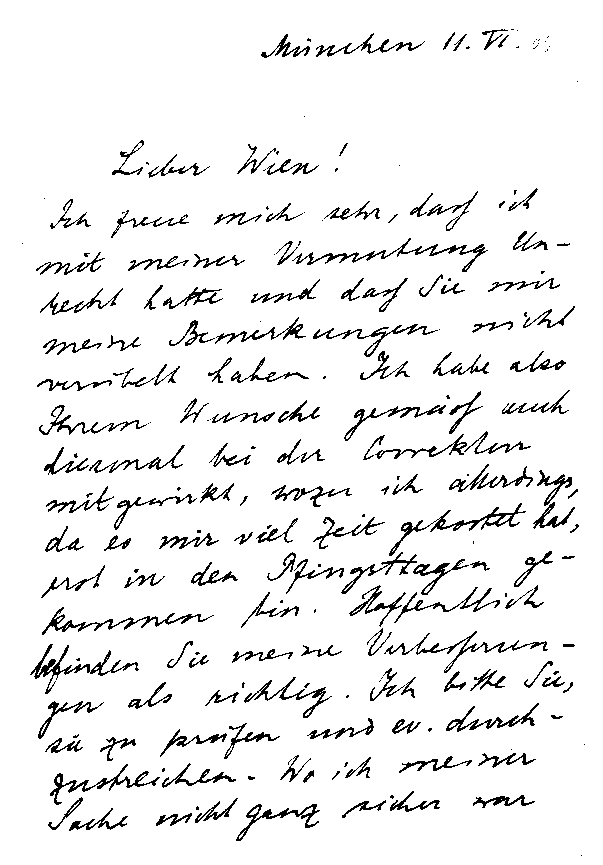 München 11. VI.
Lieber Wien!
Ich freue mich sehr, dass ich
mit meiner Vermutung Un-
recht hatte und dass Sie mir
meine Bemerkungen nicht
verübelt haben. Ich habe also
Ihrem Wunsche gemäss auch
diesmal bei der Correktur
mitgewirkt, wozu ich allerdings,
da es mir viel Zeit gekostet hat,
erst in den Pfingsttagen ge-
kommen bin. Hoffentlich
befinden Sie meine Verbesserun-
gen als richtig. Ich bitte Sie,
sie zu prüfen und ev. durch-
zustreichen. Wo ich meiner
Sache nicht ganz sicher war